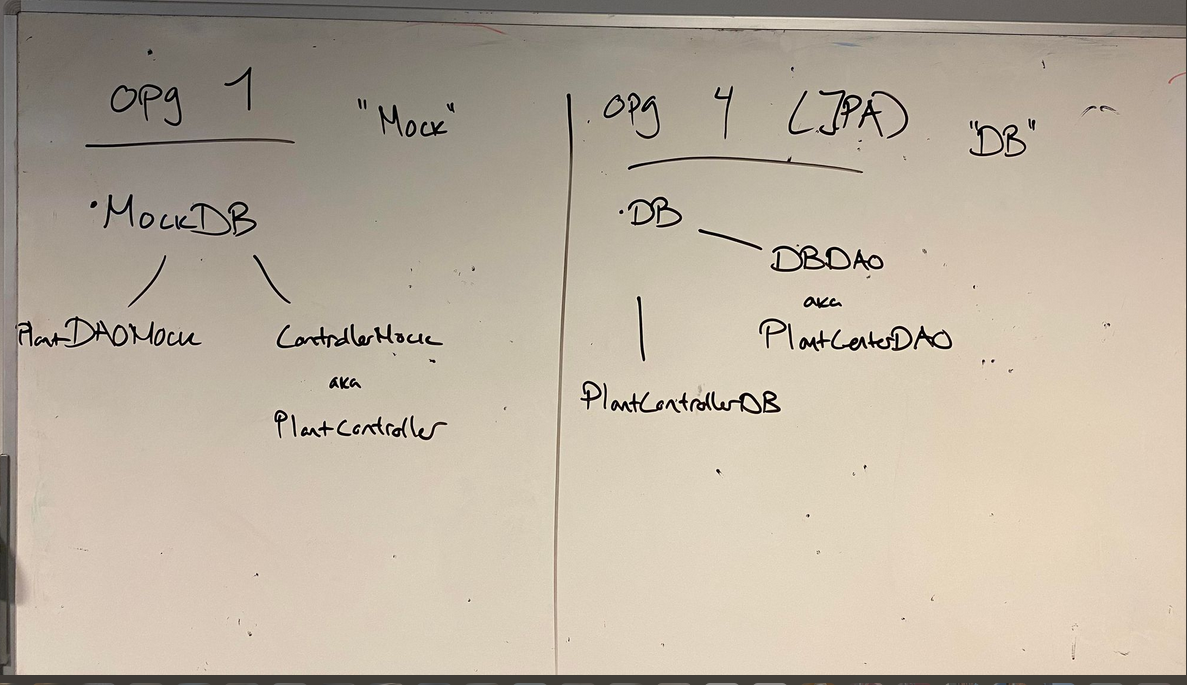 opg 1
"Mock"
•MockDB
PlantDAOMock
ControllerMock
aka
PlantController
opg 4 (JPA)
"DB"
•DB
DBDAO
aka
PlantCenterDAO
PlantControllerDB